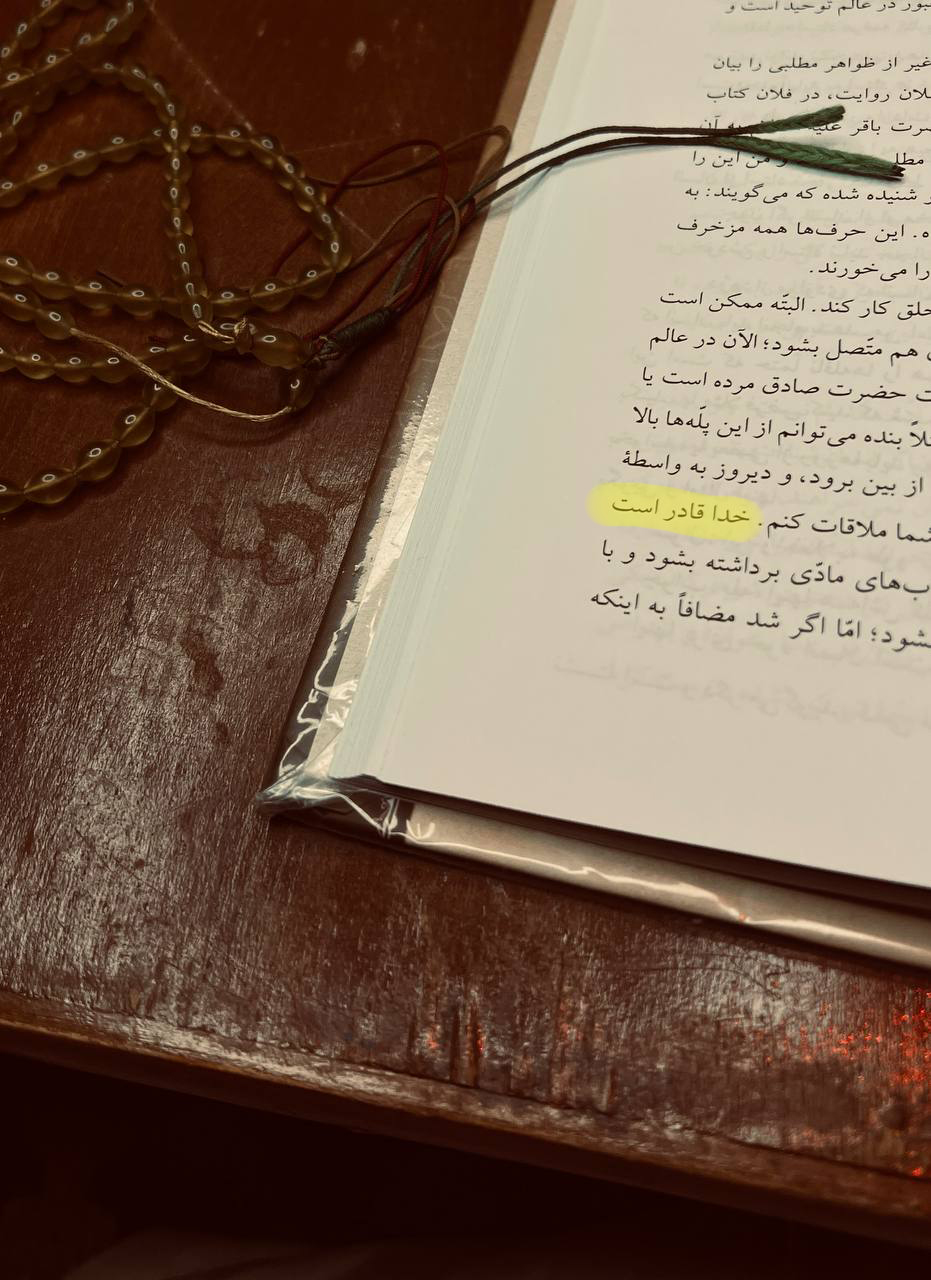 در عالم توحید است و
غیر از ظواهر مطلبی را بیان
روایت، در فلان کتاب
باقر
من این را
شنیده شده که می‌گویند: به
این حرف‌ها همه مزخرف
را می‌خورند.
کار کند. البتّه ممکن است
هم متّصل بشود؛ الآن در عالم
حضرت صادق مرده است یا
بنده می‌توانم از این پلّه‌ها بالا
از بین برود، و دیروز به واسطهٔ
شما ملاقات کنم. خدا قادر است
مادّی برداشته بشود و با
امّا اگر شد مضافاً به اینکه